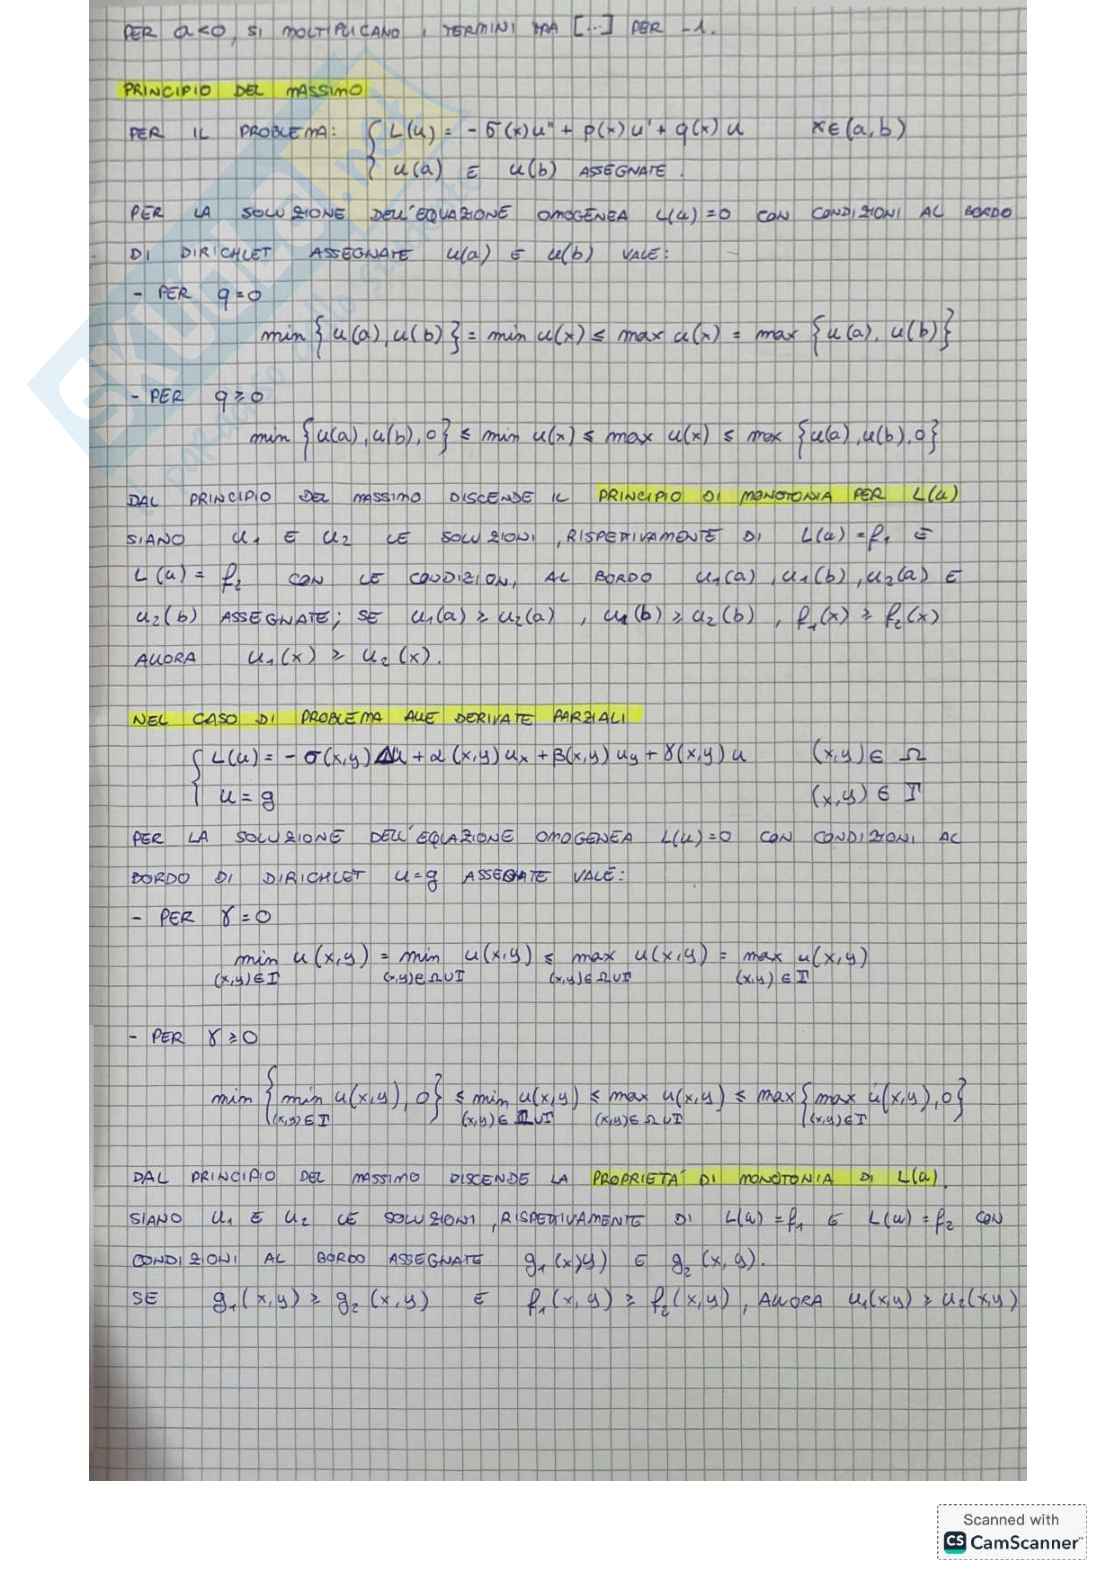 PER a<0, SI MOLTIPLICANO I TERMINI TRA [...] PER -1.
PRINCIPIO DEL MASSIMO
PER IL PROBLEMA: { L(u) = - σ(x)u" + p(x)u' + q(x)u x∈(a,b)
u(a) E u(b) ASSEGNATE.
PER LA SOLUZIONE DELL'EQUAZIONE OMOGENEA L(u)=0 CON CONDIZIONI AL BORDO
DI DIRICHLET ASSEGNATE u(a) E u(b) VALE:
- PER q=0
min {u(a), u(b)} = min u(x) ≤ max u(x) = max {u(a), u(b)}
- PER q≥0
min {u(a), u(b), 0} ≤ min u(x) ≤ max u(x) ≤ max {u(a), u(b), 0}
DAL PRINCIPIO DEL MASSIMO DISCENDE IL PRINCIPIO DI MONOTONIA PER L(u)
SIANO u₁ E u₂ LE SOLUZIONI, RISPETTIVAMENTE DI L(u)=f₁ E
L(u) = f₂ CON LE CONDIZIONI AL BORDO u₁(a), u₁(b), u₂(a) E
u₂(b) ASSEGNATE; SE u₁(a) ≥ u₂(a), u₁(b) ≥ u₂(b), f₁(x) ≥ f₂(x)
ALLORA u₁(x) ≥ u₂(x).
NEL CASO DI PROBLEMA ALLE DERIVATE PARZIALI
{ L(u) = - σ(x,y) Δu + α(x,y) uₓ + β(x,y) u_y + γ(x,y) u (x,y) ∈ Ω
u = g (x,y) ∈ Γ
PER LA SOLUZIONE DELL'EQUAZIONE OMOGENEA L(u)=0 CON CONDIZIONI AL
BORDO DI DIRICHLET u=g ASSEGNATE VALE:
- PER γ=0
min u(x,y) = min u(x,y) ≤ max u(x,y) = max u(x,y)
(x,y)∈Γ (x,y)∈Ω∪Γ (x,y)∈Ω∪Γ (x,y)∈Γ
- PER γ≥0
min { min u(x,y), 0 } ≤ min u(x,y) ≤ max u(x,y) ≤ max { max u(x,y), 0 }
(x,y)∈Γ (x,y)∈Ω∪Γ (x,y)∈Ω∪Γ (x,y)∈Γ
DAL PRINCIPIO DEL MASSIMO DISCENDE LA PROPRIETA' DI MONOTONIA DI L(u).
SIANO u₁ E u₂ LE SOLUZIONI, RISPETTIVAMENTE DI L(u)=f₁ E L(u)=f₂ CON
CONDIZIONI AL BORDO ASSEGNATE g₁(x,y) E g₂(x,y).
SE g₁(x,y) ≥ g₂(x,y) E f₁(x,y) ≥ f₂(x,y), ALLORA u₁(x,y) ≥ u₂(x,y)
Scanned with
CS CamScanner